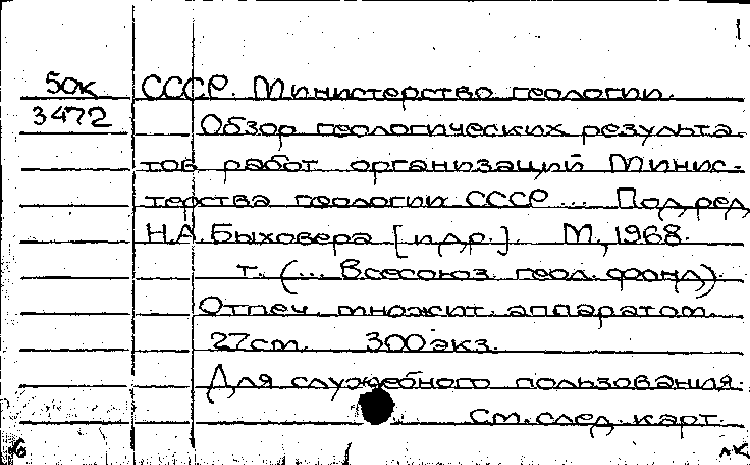 50к СССР. Министерство геологии.
3472 Обзор геологических результа-
тов работ организаций Минис-
терства геологии СССР ... Под ред.
Н.А. Быховера [и др.]. М., 1968.
т. (... Всесоюз. геол. фонд).
Отпеч. множит. аппаратом.
27 см. 300 экз.
Для служебного пользования.
См. след. карт.